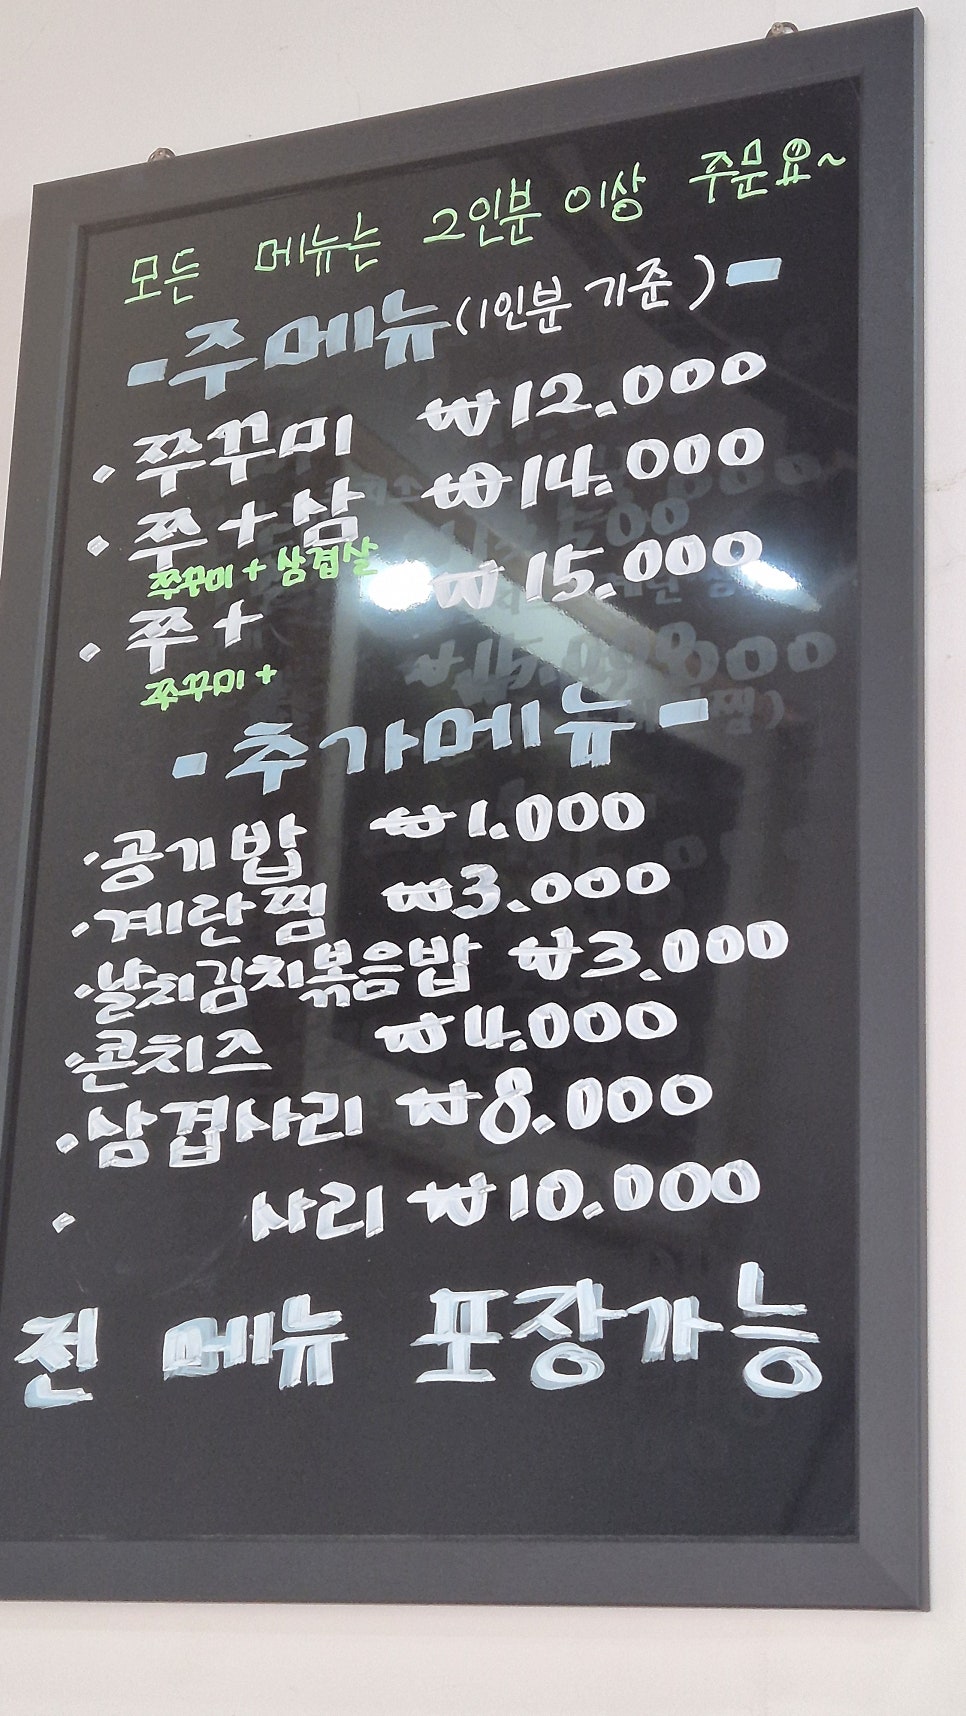 모든 메뉴는 2인분 이상 주문요~
-주메뉴(1인분 기준)-
· 쭈꾸미 ₩12.000
· 쭈+삼 ₩14.000
쭈꾸미+삼겹살
· 쭈+ ₩15.000
쭈꾸미+
-추가메뉴-
·공기밥 ₩1.000
·계란찜 ₩3.000
·날치김치볶음밥 ₩3.000
·콘치즈 ₩4.000
·삼겹사리 ₩8.000
· 사리 ₩10.000
전 메뉴 포장가능